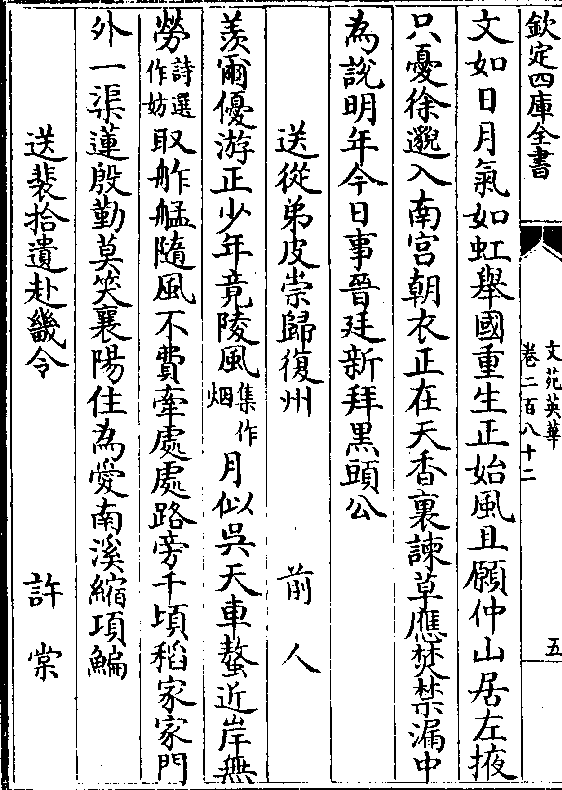 欽定四庫全書
文苑英華
卷二百八十二
五
文如日月氣如虹舉國重生正始風且願仲山居左掖
只憂徐邈入南宫朝衣正在天香裏諫草應焚禁漏中
為說明年今日事晉廷新拜黒頭公
送從弟皮崇歸復州 前人
羨爾優游正少年竟陵風集作烟月似吳天車螯近岸無
勞詩選作妨取舴艋隨風不費牽處處路旁千頃稻家家門
外一渠蓮殷勤莫笑襄陽住為愛南溪縮項鯿
送裴拾遺赴畿令 許棠